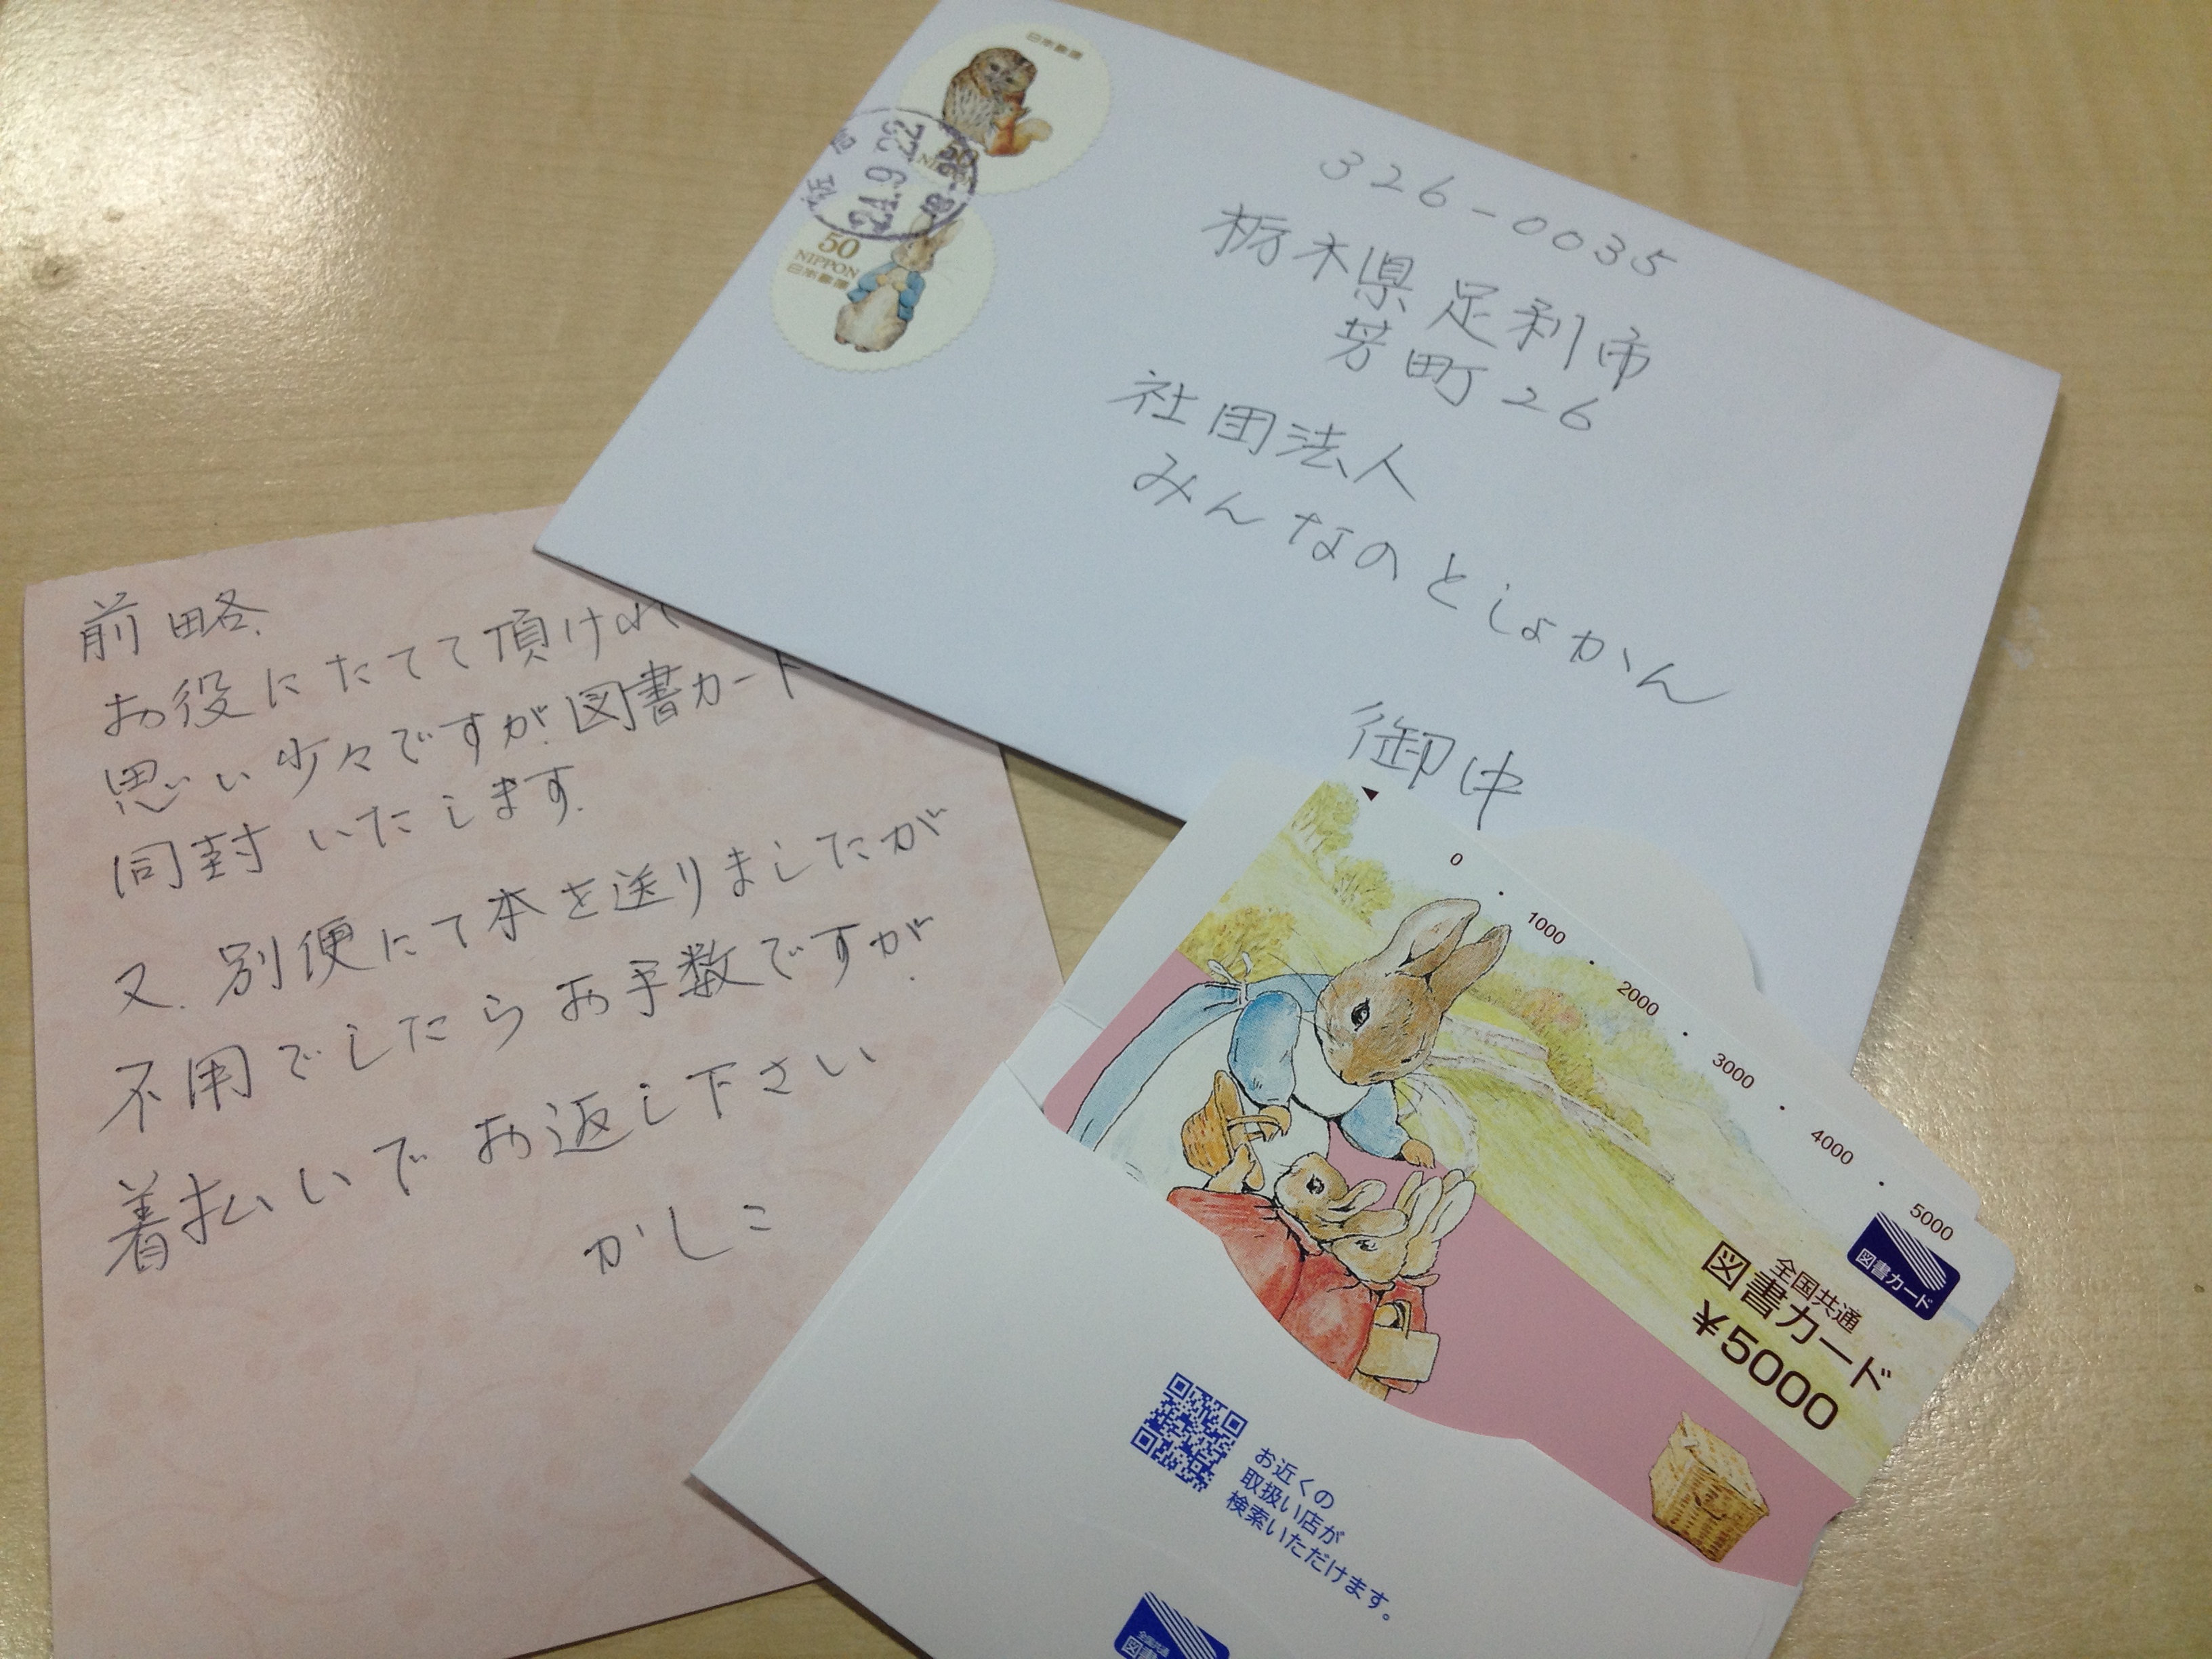 日本郵便
50
NIPPON
24.9.22
50
NIPPON
日本郵便
326-0035
栃木県足利市
芳町26
社団法人
みんなのとしょかん
御中
前略
お役にたてて頂けれ
思い少々ですが図書カード
同封いたします.
又.別便にて本を送りましたが
不用でしたらお手数ですが.
着払いでお返し下さい
かしこ
0
1000
2000
3000
4000
5000
図書カード
全国共通
図書カード
¥5000
お近くの
取扱い店が
検索いただけます。
全国共通
図書